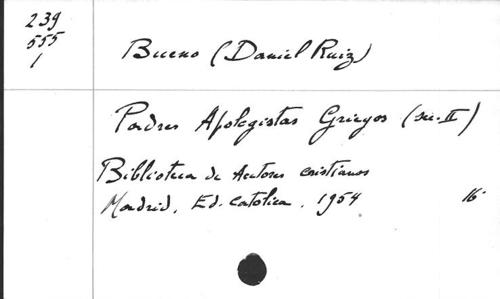 239
555
1
Bueno (Daniel Ruiz)
Padres Apologistas Griegos (sec. II)
Biblioteca de Autores cristianos
Madrid, Ed. Catolica. 1954 16º